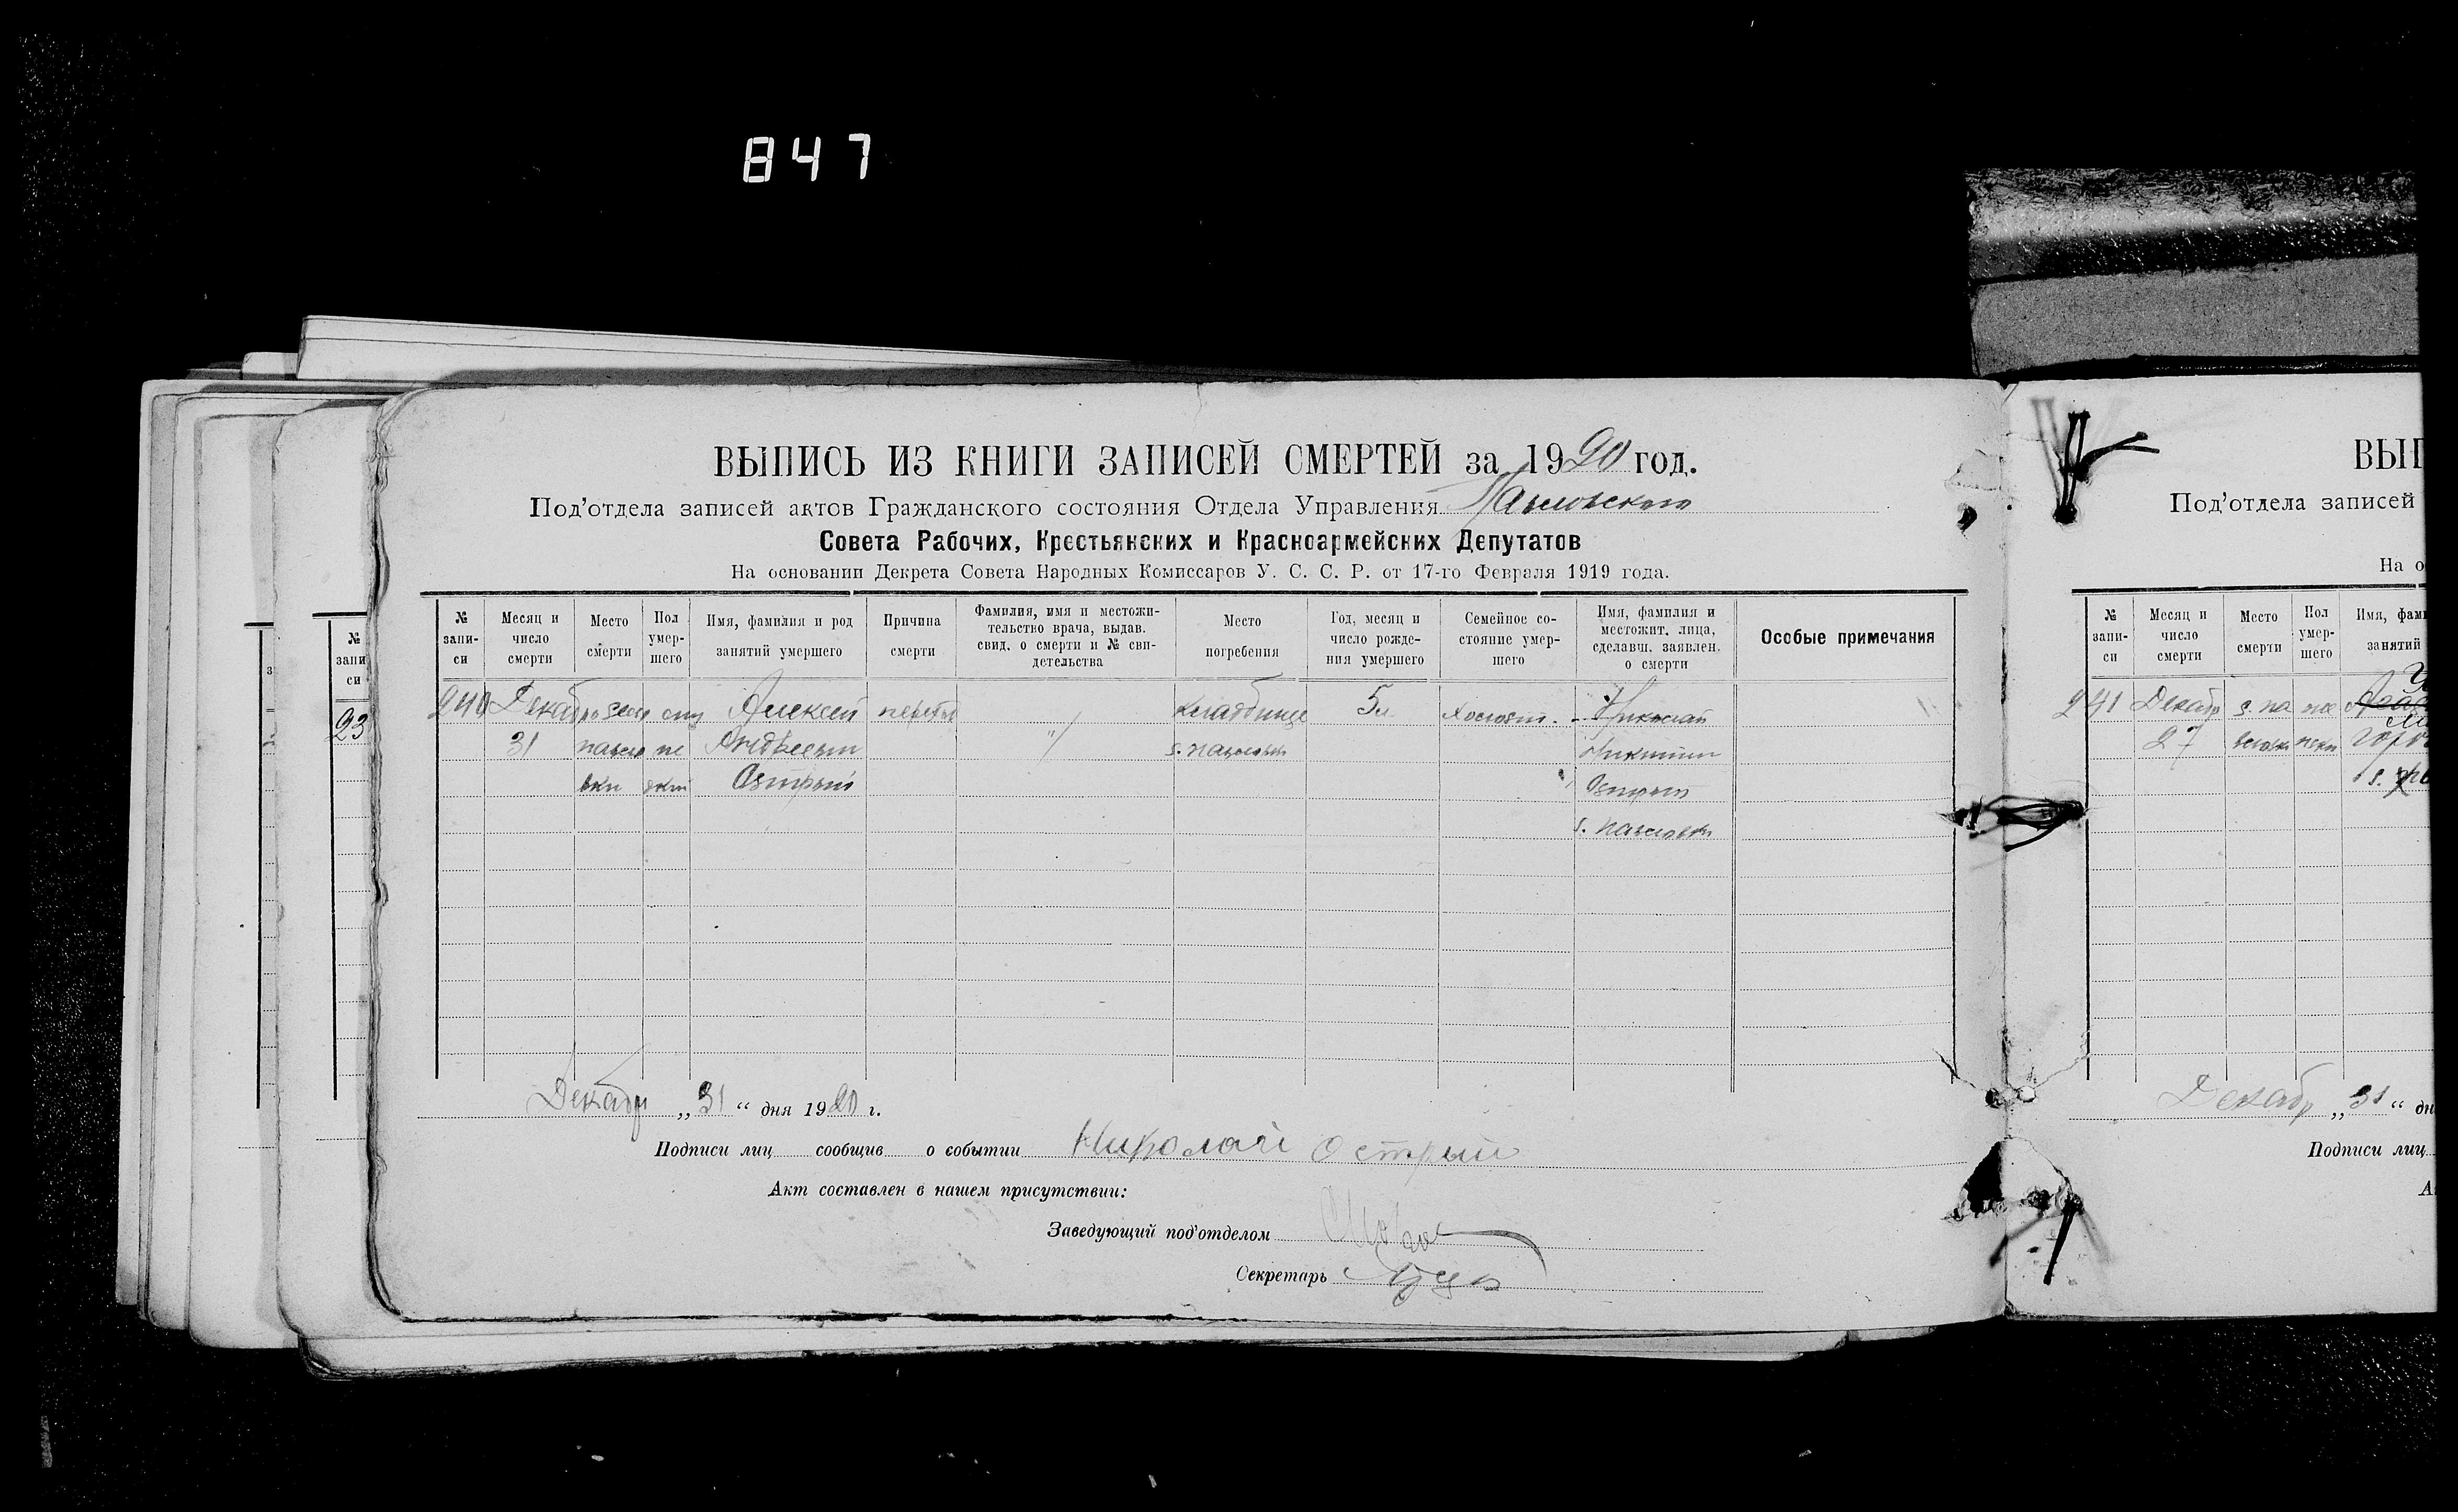 847
ВЫПИСЬ ИЗ КНИГИ ЗАПИСЕЙ СМЕРТЕЙ за 1920 год.
Под'отдела записей актов Гражданского состояния Отдела Управления Павловского
Совета Рабочих, Крестьянских и Красноармейских Депутатов
На основании Декрета Совета Народных Комиссаров У. С. С. Р. от 17-го Февраля 1919 года.
№ запи-си
Месяц и число смерти
Место смерти
Пол умер-шего
Имя, фамилия и род занятий умершего
Причина смерти
Фамилия, имя и местожи-тельство врача, выдав. свид. о смерти и № сви-детельства
Место погребения
Год, месяц и число рожде-ния умершего
Семейное со-стояние умер-шего
Имя, фамилия и местожит. лица, сделавш. заявлен. о смерти
Особые примечания
240 Алексей 5 л. Холост. Николай
31 Андреевич s. Павловки Никитин
Острый Острый
s. Павловки
Декабр „31“ дня 1920 г.
Подписи лиц сообщив о событии Николай Острый
Акт составлен в нашем присутствии:
Заведующий под'отделом
Секретарь
№ запи си
23
ВЫП
Под'отдела записей
На о
№ запи-си
Месяц и число смерти
Место смерти
Пол умер-шего
Имя, фам
занятий
241 Декабр
27
Декабр „31“ дн
Подписи лиц
А